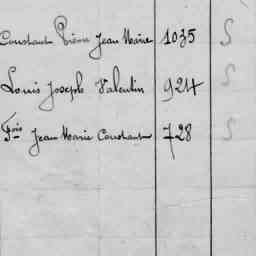 Constant Pierre Jean Marie 1035 S
Louis Joseph Valentin 924 S
Fois Jean Marie Constant 728 S